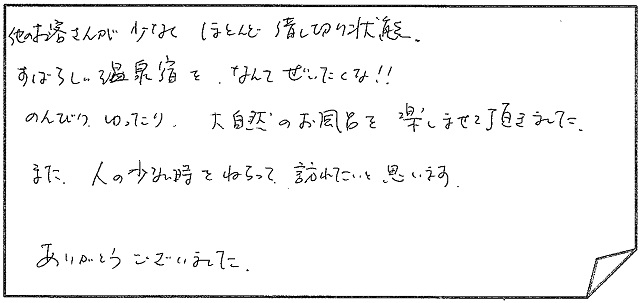 他のお客さんが少なく ほとんど 借し切り状態。
すばらしい温泉宿を、なんて ぜいたくな!!
のんびり、ゆったり、大自然のお風呂を楽しませて頂きました。
また、人の少ない時をねらって 訪れたいと思います。
ありがとうございました。